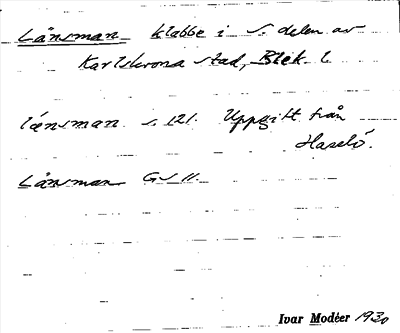 Länsman klabbe i S. delen av
Karlskrona stad, Blek. l.
länsman s. 121. Uppgift från
Hasslö.
Länsman GS 11.
Ivar Modéer 1930